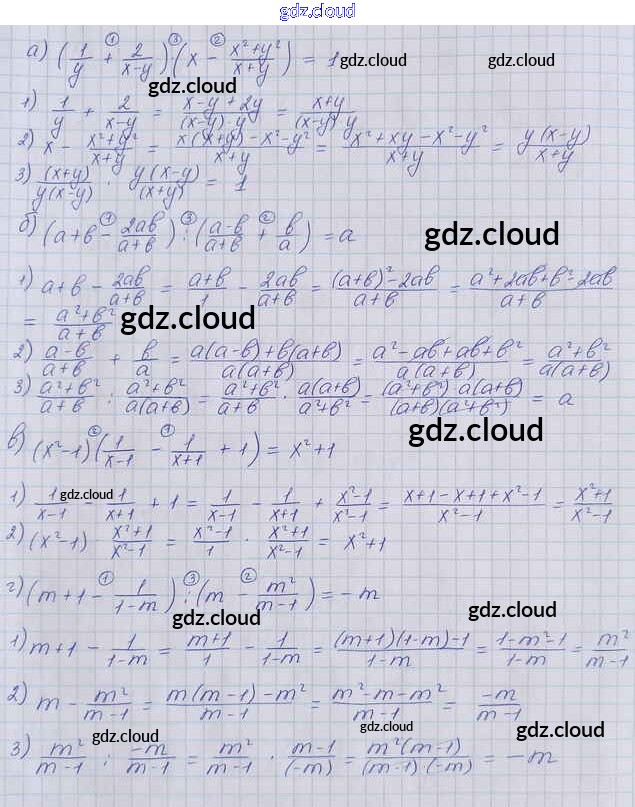 gdz.cloud
а) (1/y + 2/(x-y)) (x - (x²+y²)/(x+y)) = 1
① ③ ②
gdz.cloud
gdz.cloud
1) 1/y + 2/(x-y) = (x-y+2y)/((x-y)·y) = (x+y)/((x-y)·y)
2) x - (x²+y²)/(x+y) = (x(x+y)-x²-y²)/(x+y) = (x²+xy-x²-y²)/(x+y) = y(x-y)/(x+y)
3) (x+y)/(y(x-y)) · y(x-y)/(x+y) = 1
б) (a+b - 2ab/(a+b)) : ((a-b)/(a+b) + b/a) = a
① ③ ②
gdz.cloud
1) a+b - 2ab/(a+b) = (a+b)/1 - 2ab/(a+b) = ((a+b)²-2ab)/(a+b) = (a²+2ab+b²-2ab)/(a+b)
= (a²+b²)/(a+b)
gdz.cloud
2) (a-b)/(a+b) + b/a = (a(a-b)+b(a+b))/(a(a+b)) = (a²-ab+ab+b²)/(a(a+b)) = (a²+b²)/(a(a+b))
3) (a²+b²)/(a+b) : (a²+b²)/(a(a+b)) = (a²+b²)/(a+b) · a(a+b)/(a²+b²) = (a²+b²)·a(a+b)/((a+b)(a²+b²)) = a
gdz.cloud
в) (x²-1)(1/(x-1) - 1/(x+1) + 1) = x²+1
② ①
1) 1/(x-1) - 1/(x+1) + 1 = 1/(x-1) - 1/(x+1) + (x²-1)/(x²-1) = (x+1-x+1+x²-1)/(x²-1) = (x²+1)/(x²-1)
gdz.cloud
2) (x²-1) · (x²+1)/(x²-1) = (x²-1)/1 · (x²+1)/(x²-1) = x²+1
г) (m+1 - 1/(1-m)) : (m - m²/(m-1)) = -m
① ③ ②
gdz.cloud
gdz.cloud
1) m+1 - 1/(1-m) = (m+1)/1 - 1/(1-m) = ((m+1)(1-m)-1)/(1-m) = (1-m²-1)/(1-m) = m²/(m-1)
gdz.cloud
2) m - m²/(m-1) = (m(m-1)-m²)/(m-1) = (m²-m-m²)/(m-1) = -m/(m-1)
gdz.cloud
gdz.cloud
gdz.cloud
3) m²/(m-1) : -m/(m-1) = m²/(m-1) · (m-1)/(-m) = m²(m-1)/((m-1)·(-m)) = -m